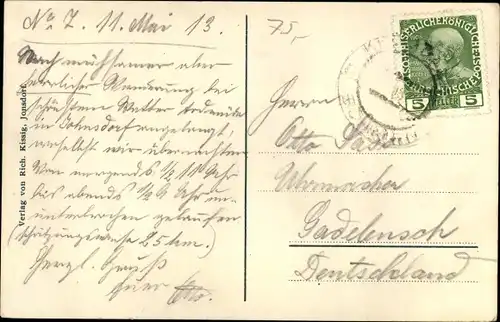 No 7. 11. Mai 13.
75,-
Nach mühsamer aber
herrlicher Wanderung bei
schönstem Wetter todmüde
in Johnsdorf angelangt,
wir übernachten
Von morgens ½ 11 Uhr
bis abends ½ 9 Uhr un-
unterbrochen gelaufen
(schätzungsweise 25 km.)
Herzl. Gruß
Euer Otto.
Verlag von Rich. Kissig, Jonsdorf.
KAISERLICHE KÖNIGLICHE
ÖSTERREICHISCHE POST
5 HELLER 5
Herrn
Otto
Uhrmacher
Gadebusch
Deutschland